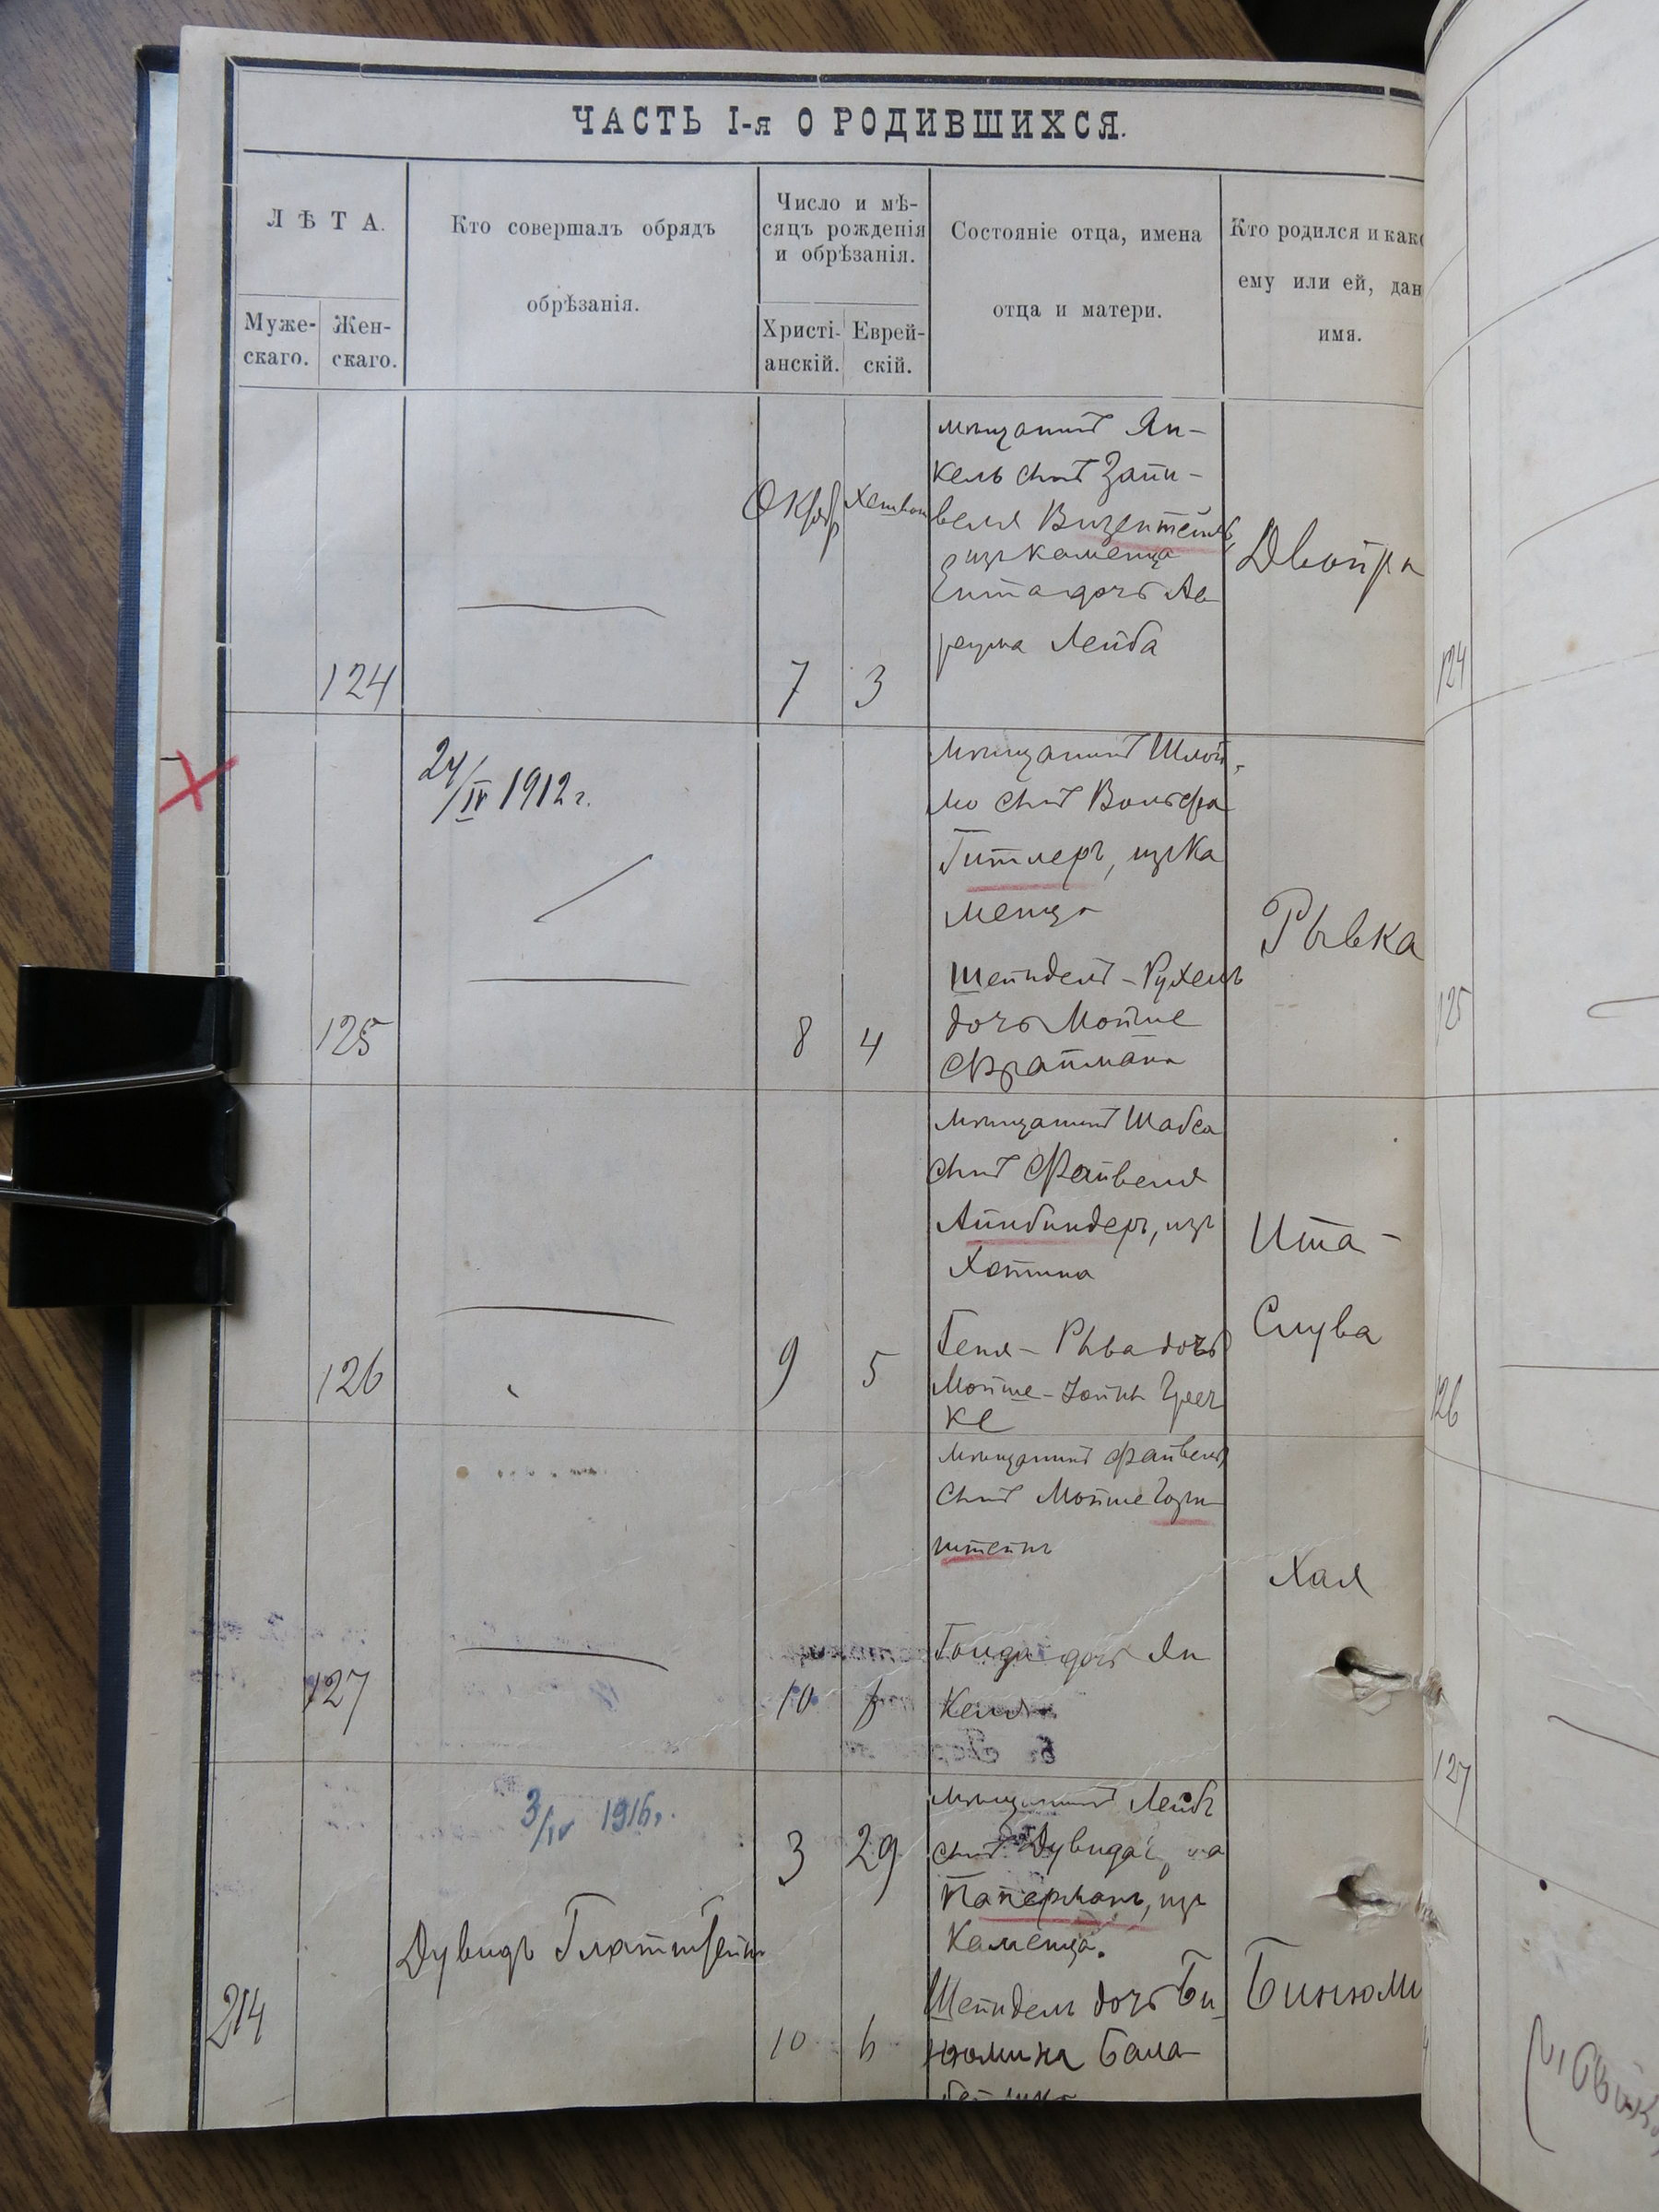 ЧАСТЬ I-я О РОДИВШИХСЯ.
ЛѢТА.
Муже-
скаго.
Жен-
скаго.
Кто совершалъ обрядъ
обрѣзанія.
Число и мѣ-
сяцъ рожденія
и обрѣзанія.
Христі-
анскій.
Еврей-
скій.
Состояніе отца, имена
отца и матери.
Кто родился и како
ему или ей, дан
имя.
124
Октябр
7
3
мѣщанинъ Ян-
кель сынъ Зайн-
веля
изъ Каменца
дочь Ав
реума Лейба
Двойра
124
125
24/IV 1912 г.
8
4
мѣщанинъ Шлой-
мо сынъ Вольфа
Гитлеръ, изъ Ка
менца
Шейндель-Рухель
дочь Мойше
Фраймана
Рывка
125
126
9
5
мѣщанинъ Шабса
сынъ Файвеля
Айнбиндеръ, изъ
Хотина
Геня-Рыва дочь
Мойше-
ке
Ита-
Слува
126
127
10
6
мѣщанинъ Файвель
сынъ Мойше
штейнъ
Голда дочь Ян
келя
Хая
127
214
3/IV 1916 г.
Дувидъ Глаттштейнъ
3
29
10
6
мѣщанинъ Лейбъ
сынъ Дувида
Паперманъ, изъ
Каменца.
Шейндель дочь Би
нюмина Бала
Бинюми